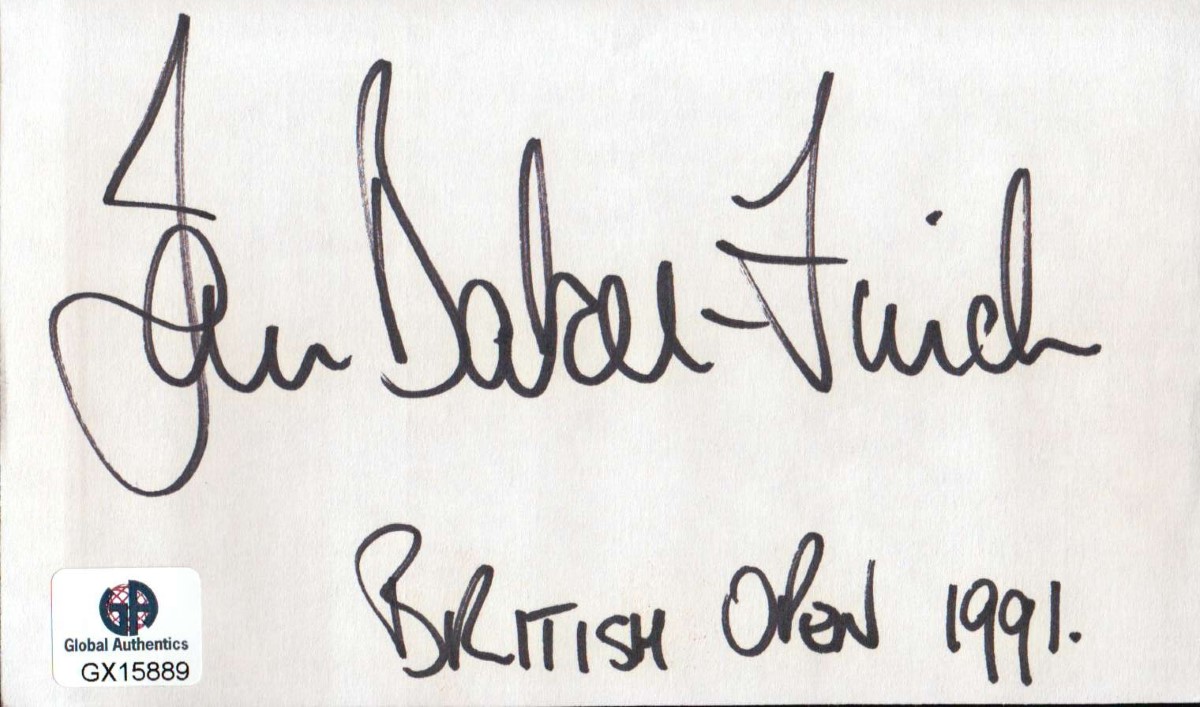 Ian Baker-Finch
BRITISH OPEN 1991.
GA
Global Authentics
GX15889